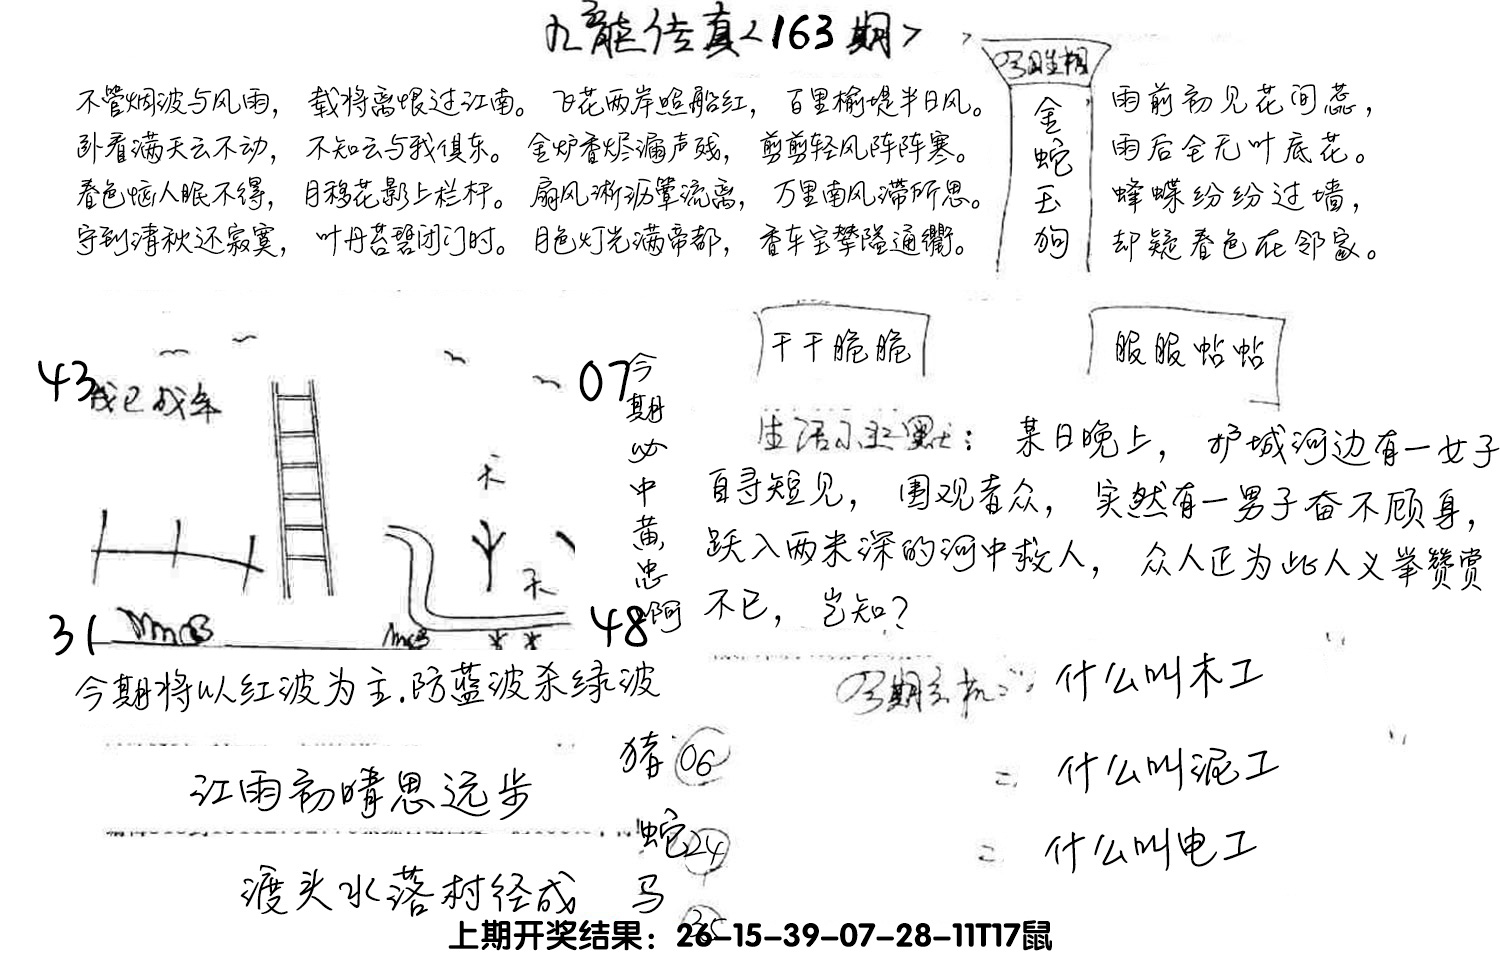 九龙传真<163期>
不管烟波与风雨，载将离恨过江南。飞花两岸照船红，百里榆堤半日风。
卧看满天云不动，不知云与我俱东。金炉香烬漏声残，剪剪轻风阵阵寒。
春色恼人眠不得，月移花影上栏杆。扇风淅沥簟流离，万里南风滞所思。
守到清秋还寂寞，叶丹苔碧闭门时。月色灯光满帝都，香车宝辇隘通衢。
金蛇玉狗
雨前初见花间蕊，
雨后全无叶底花。
蜂蝶纷纷过墙，
却疑春色在邻家。
干干脆脆
服服帖帖
43
07
天
天
31
48
今期必中黄忠啊
某日晚上，护城河边有一女子
自寻短见，围观者众，突然有一男子奋不顾身，
跃入两米深的河中救人，众人正为此人义举赞赏
不已，岂知？
今期将以红波为主.防蓝波杀绿波
江雨初晴思远步
渡头水落村径成
猪 06
蛇 24
马 35
什么叫木工
什么叫泥工
什么叫电工
上期开奖结果：26-15-39-07-28-11T17鼠